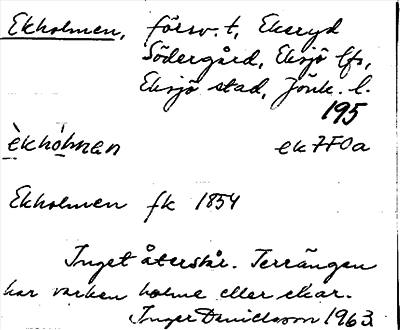 Ekholmen, försv. t, Ekeryd
Södergård, Eksjö lfs,
Eksjö stad, Jönk. l.
195
èkhólmen ek 7F0a
Ekholmen fk 1854
Inget återstår. Terrängen
har varken holme eller ekar.
Inger Danielsson 1963.